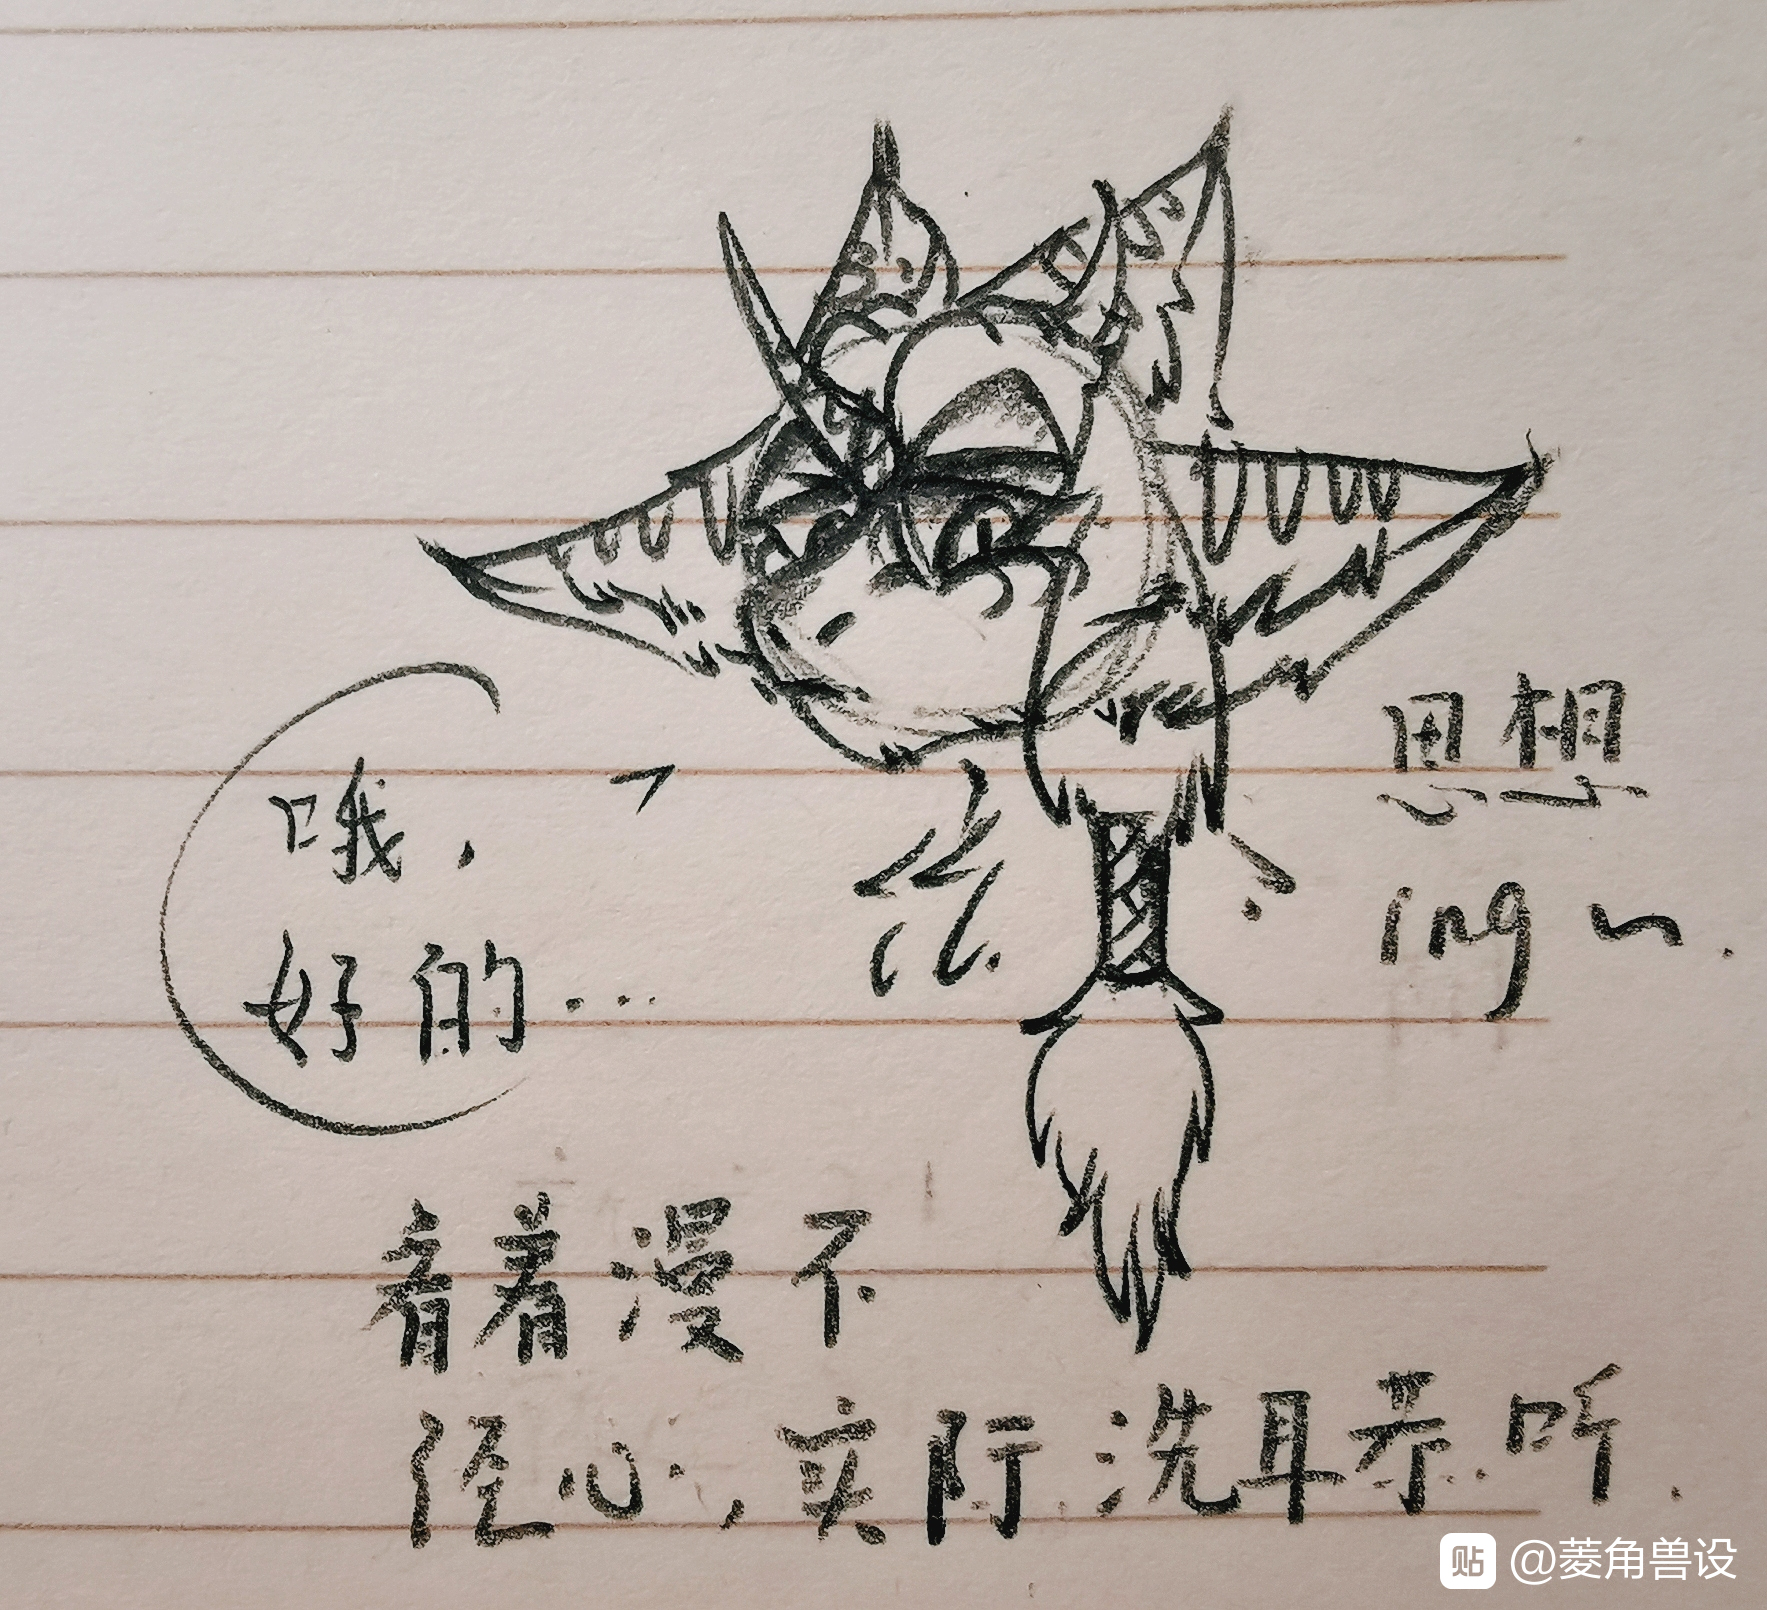 哦，
好的…
思想
ing～.
看着漫不
径心，实际洗耳恭听.
贴 @菱角兽设